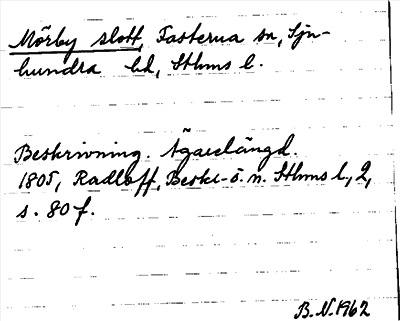 Mörby slott, Fasterna sn, Sju-
hundra hd, Sthms l.
Beskrivning. Ägarelängd.
1805, Radloff, Beskr. ö. n. Sthms l, 2,
s. 80 f.
B.N. 1962